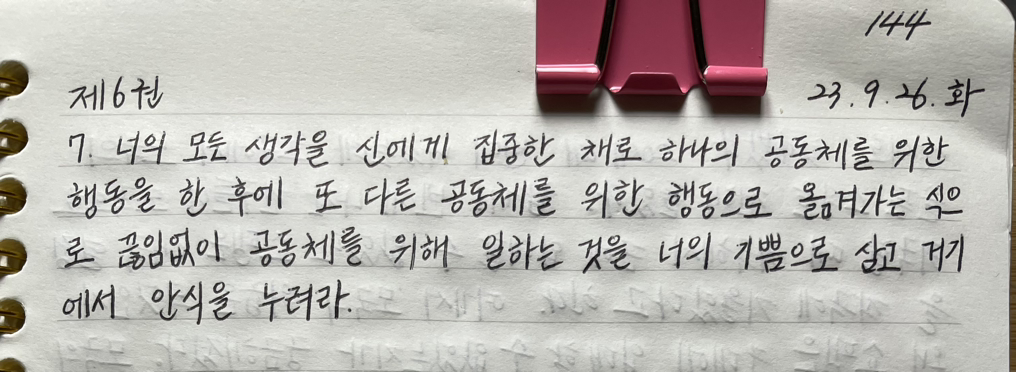 144
제6권
23.9.26.화
7. 너의 모든 생각을 신에게 집중한 채로 하나의 공동체를 위한
행동을 한 후에 또 다른 공동체를 위한 행동으로 옮겨가는 식으
로 끊임없이 공동체를 위해 일하는 것을 너의 기쁨으로 삼고 거기
에서 안식을 누려라.